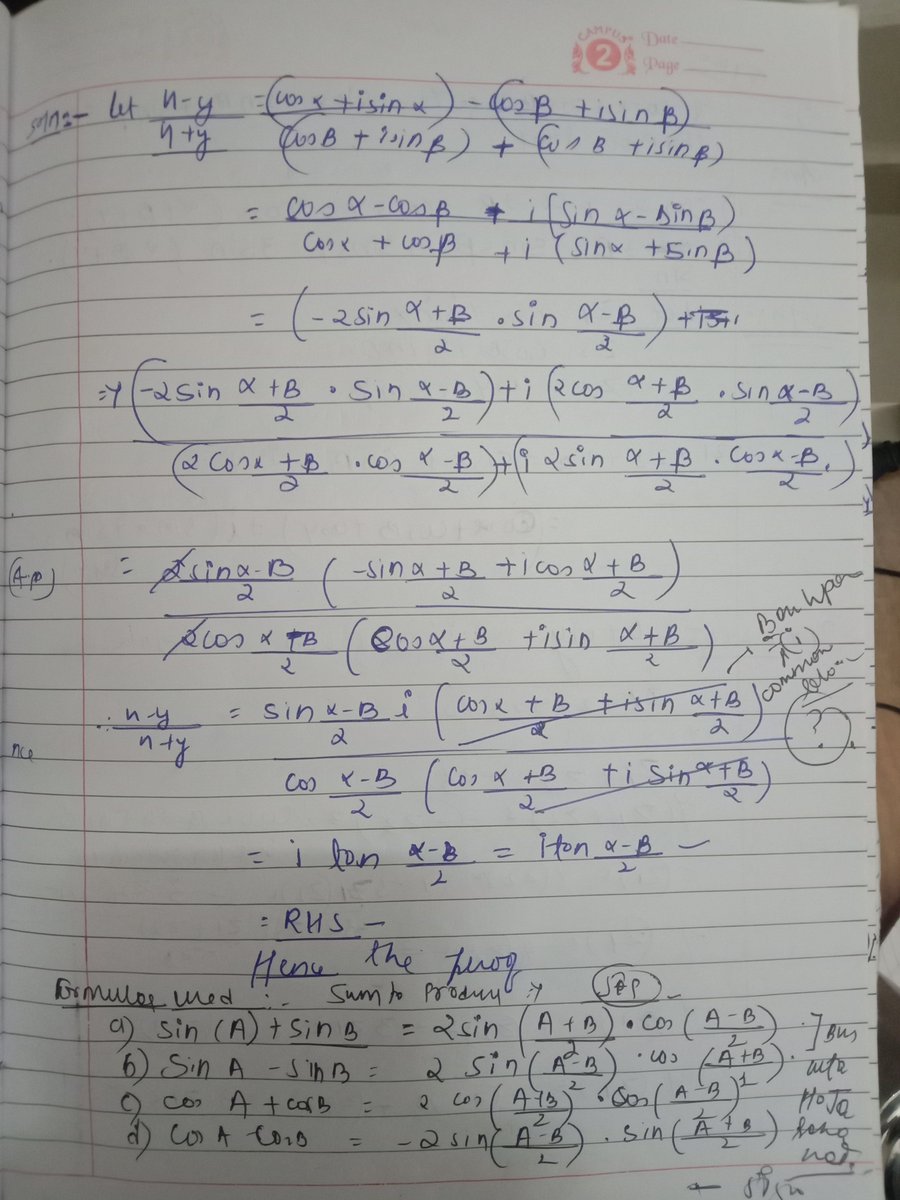 CAMPUS 2 Date
Page
soln:- let n-y/n+y = (cos α + i sin α) - (cos β + i sin β)/(cos B + i sin β) + (cos B + i sin β)
= cos α - cos β + i (sin α - sin β)/cos α + cos β + i (sin α + sin β)
= (-2 sin α+B/2 . sin α-β/2) +
=> (-2 sin α+B/2 . sin α-B/2) + i (2 cos α+β/2 . sin α-B/2)/(2 cos α+B/2 . cos α-B/2) + (i 2 sin α+β/2 . cos α-B/2)
= 2 sin α-B/2 (-sin α+B/2 + i cos α+B/2)/2 cos α-B/2 (cos α+B/2 + i sin α+B/2)
(i) common
?
∴ n-y/n+y = sin α-B/2 i (cos α+B/2 + i sin α+B/2)/cos α-B/2 (cos α+B/2 + i sin α+B/2)
nce
= i tan α-B/2 = i tan α-B/2 -
= RHS -
Hence the proof
Formulas used :- Sum to Product :-
a) sin (A) + sin B = 2 sin (A+B/2) . cos (A-B/2)
b) Sin A - sin B = 2 sin (A-B/2) . cos (A+B/2).
c) cos A + cos B = 2 cos (A+B/2) . cos (A-B/2)
d) cos A - cos B = -2 sin (A-B/2) . sin (A+B/2)